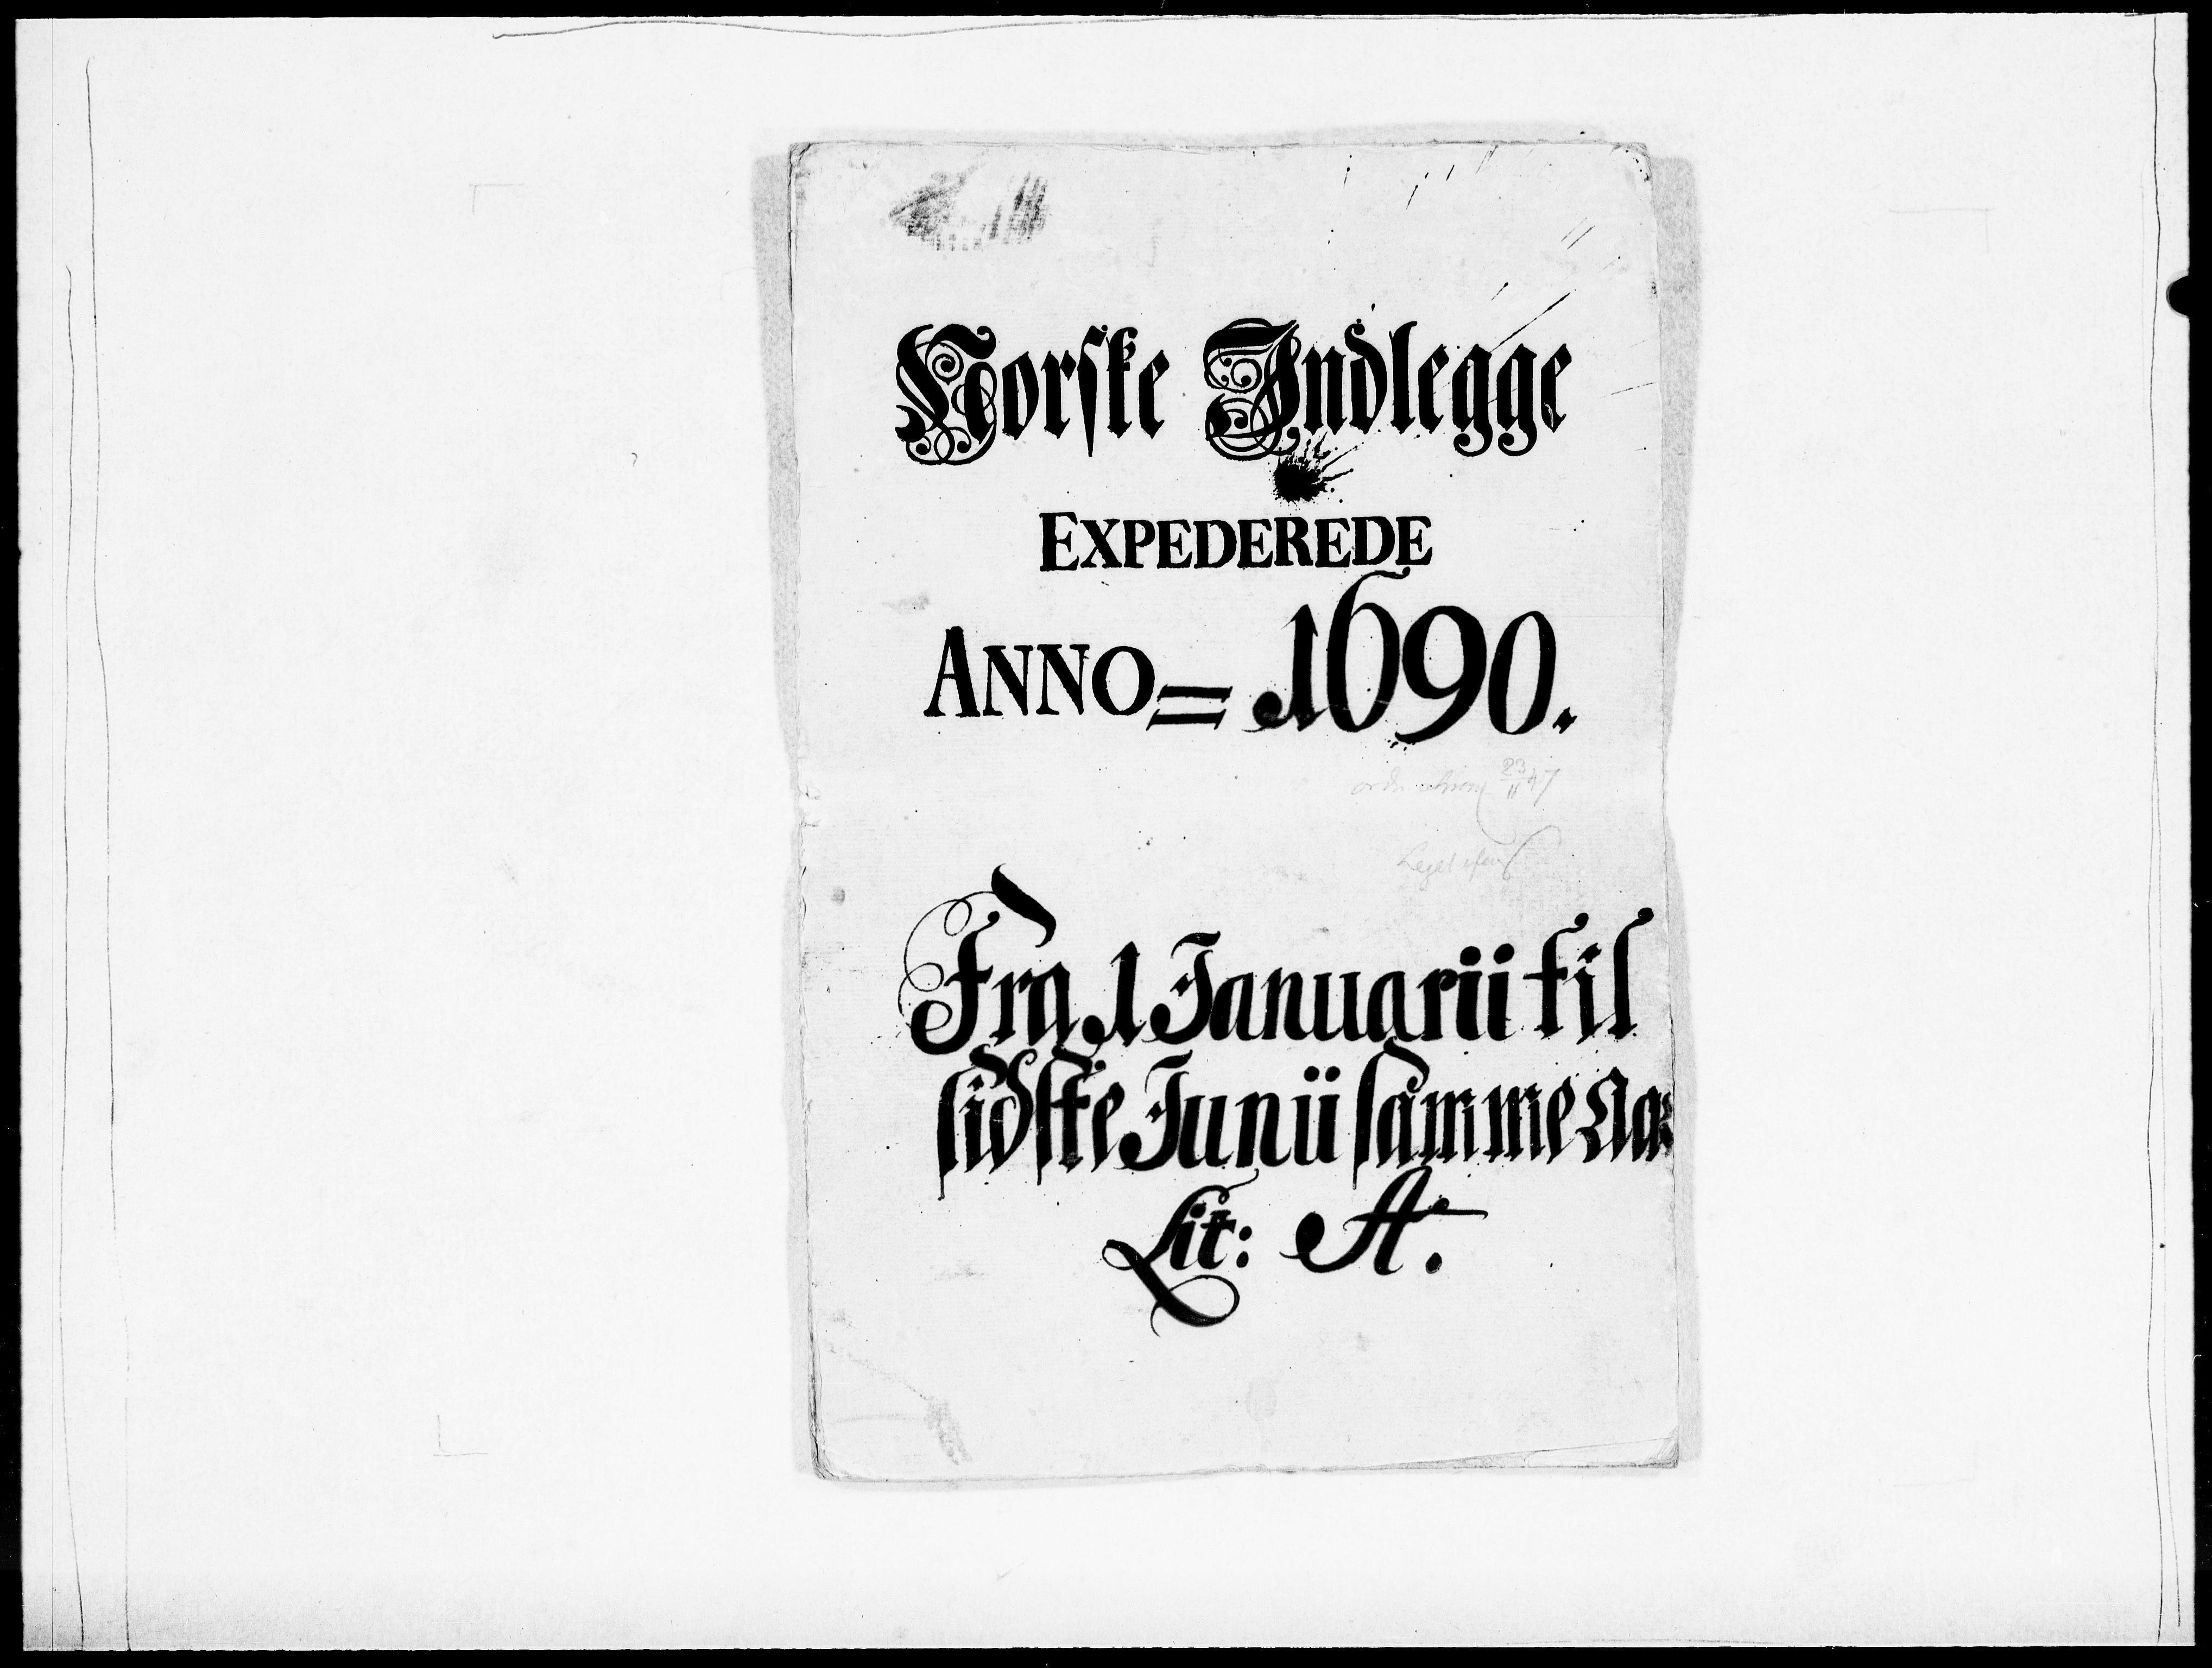 Norske Indlegge
EXPEDEREDE
ANNO = 1690.
23/11 47
Fra 1 Januarii til
sidste Junii samme Aar
Lit: A.